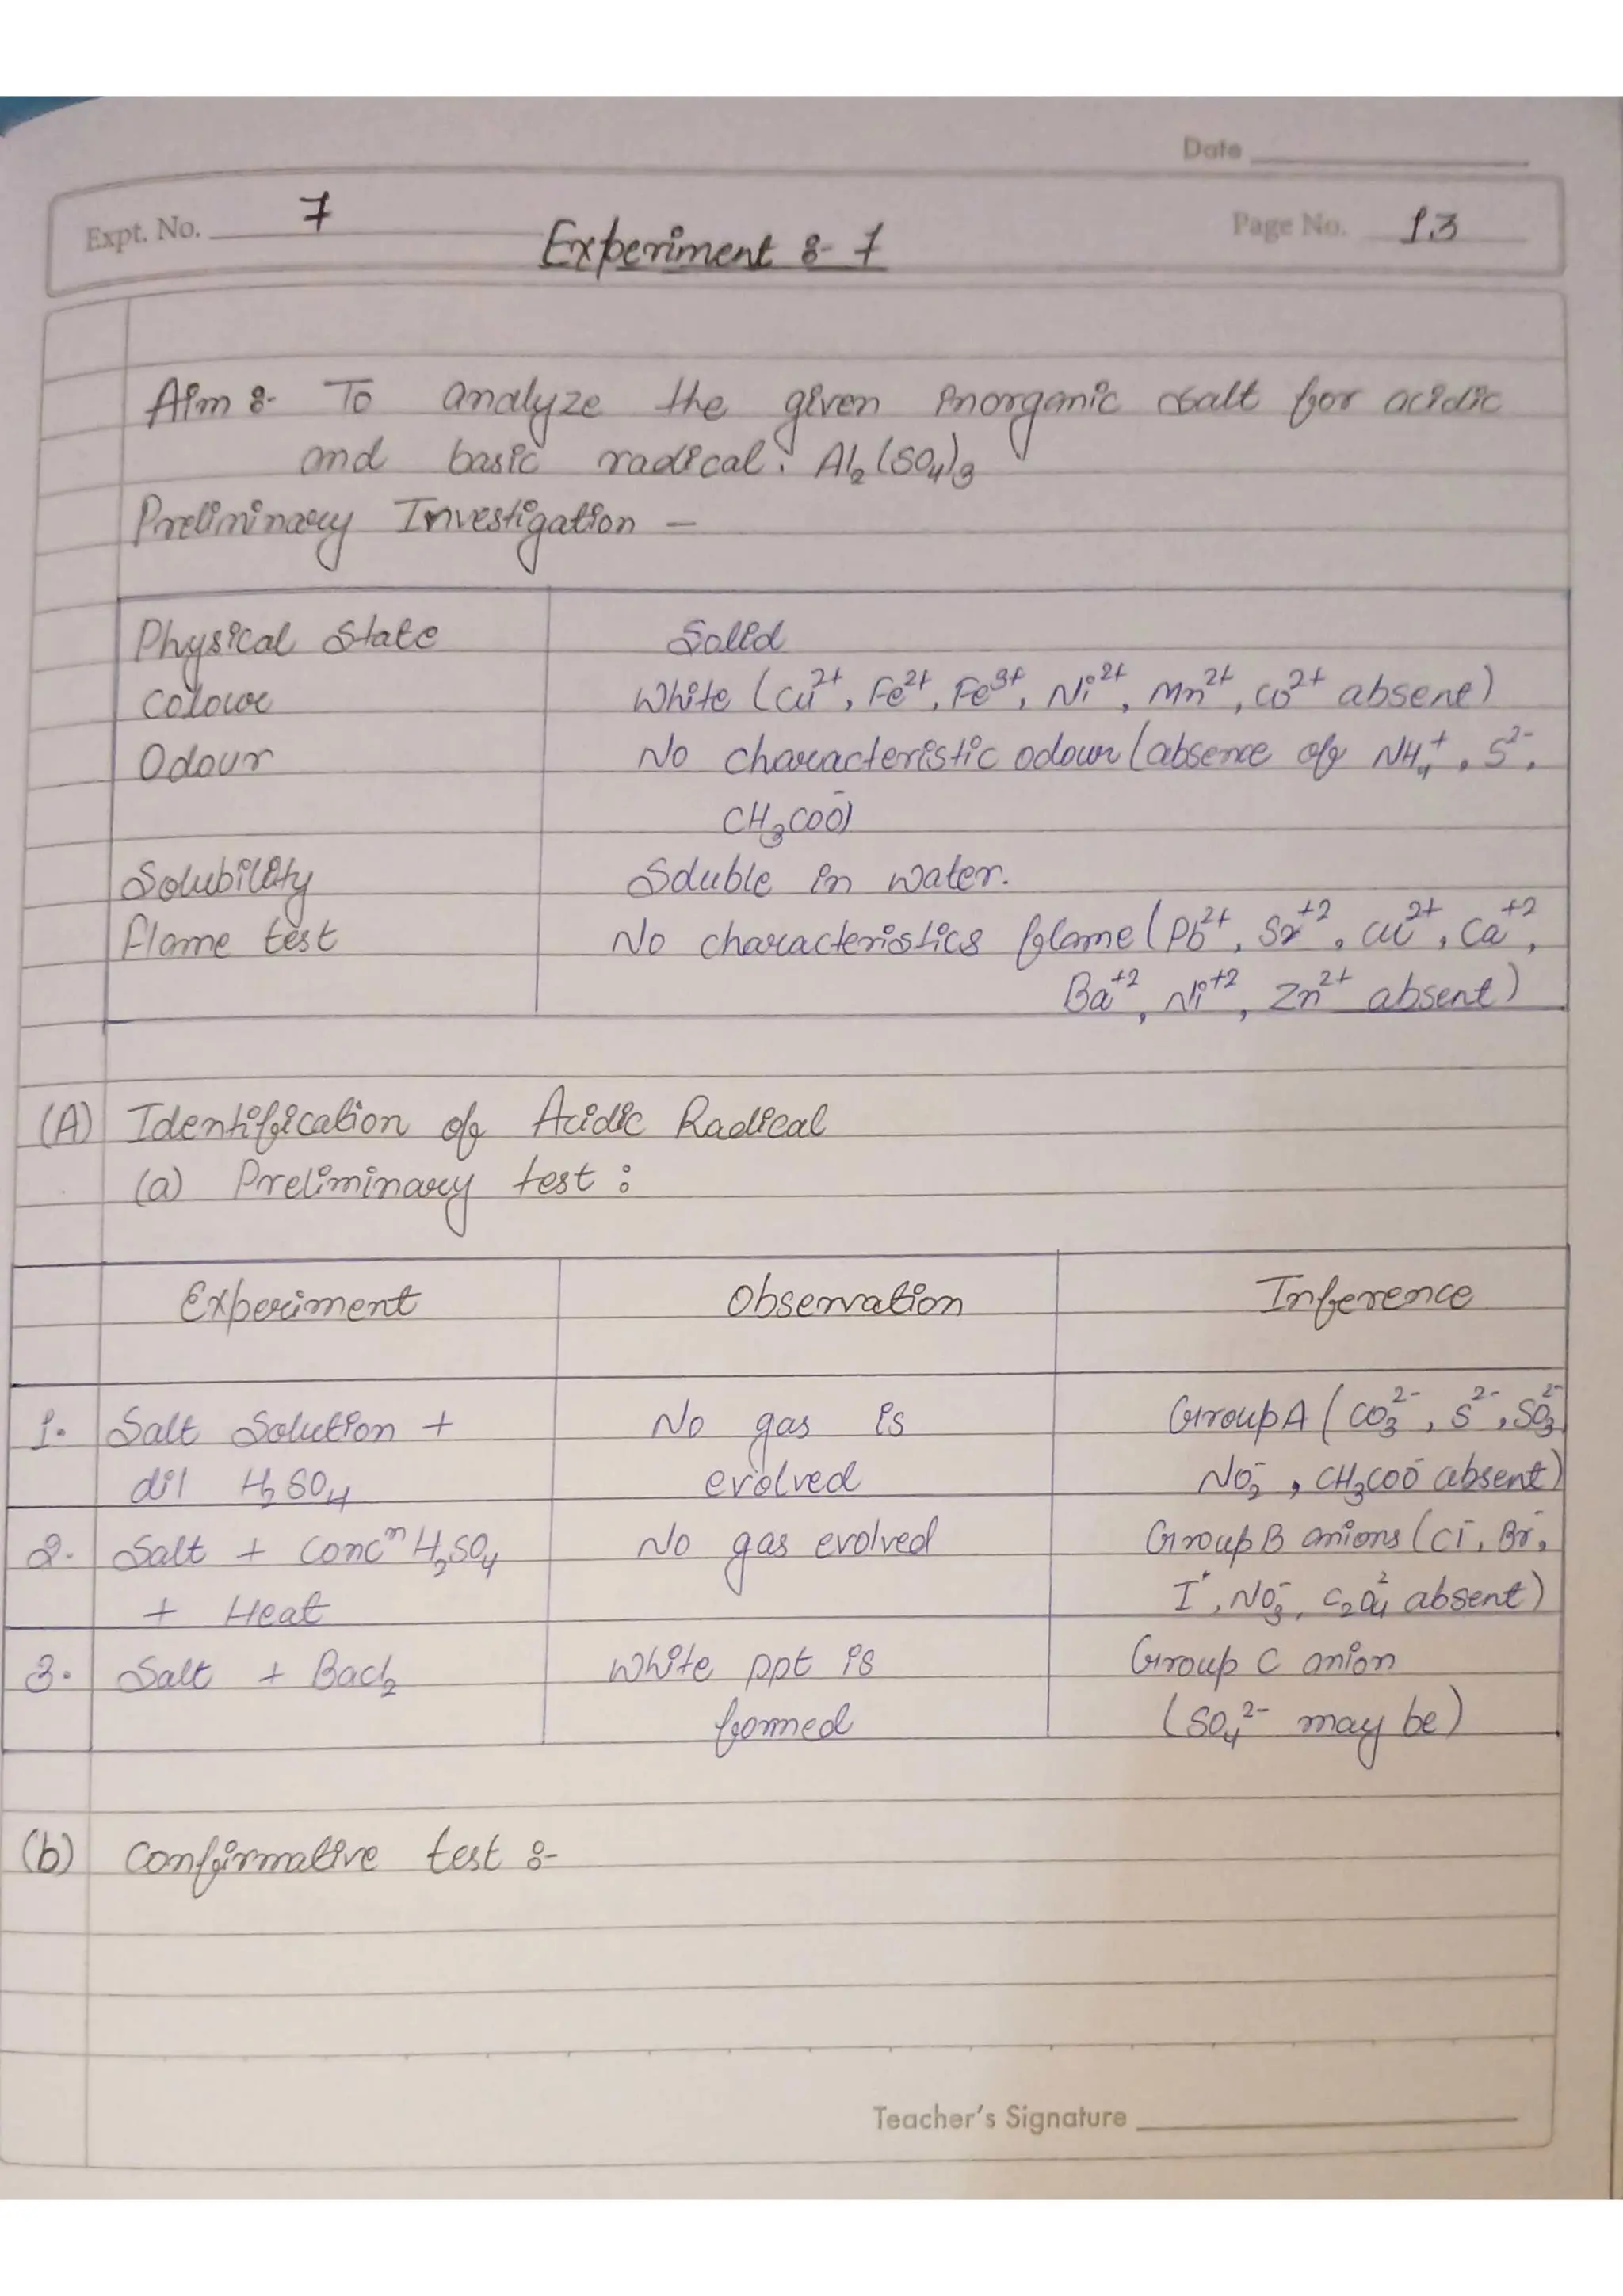 Date
Expt. No. 7
Page No. 13
Experiment :- 7
Aim :- To analyze the given inorganic salt for acidic
and basic radical. Al₂(SO₄)₃
Preliminary Investigation —
Physical State Solid
Colour White (Cu²⁺, Fe²⁺, Fe³⁺, Ni²⁺, Mn²⁺, Co²⁺ absent)
Odour No characteristic odour (absence of NH₄⁺, S²⁻,
CH₃COO⁻)
Solubility Soluble in water.
Flame test No characteristics flame (Pb²⁺, Sr⁺², Cu²⁺, Ca⁺²,
Ba⁺², Ni⁺², Zn²⁺ absent)
(A) Identification of Acidic Radical
(a) Preliminary test :
Experiment Observation Inference
1. Salt Solution + No gas is Group A (CO₃²⁻, S²⁻, SO₃²⁻
dil H₂SO₄ evolved NO₂⁻, CH₃COO⁻ absent)
2. Salt + Concⁿ H₂SO₄ No gas evolved Group B anions (Cl⁻, Br⁻,
+ Heat I⁻, NO₃⁻, C₂O₄² absent)
3. Salt + BaCl₂ White ppt is Group C anion
formed (SO₄²⁻ may be)
(b) Confirmative test :-
Teacher's Signature